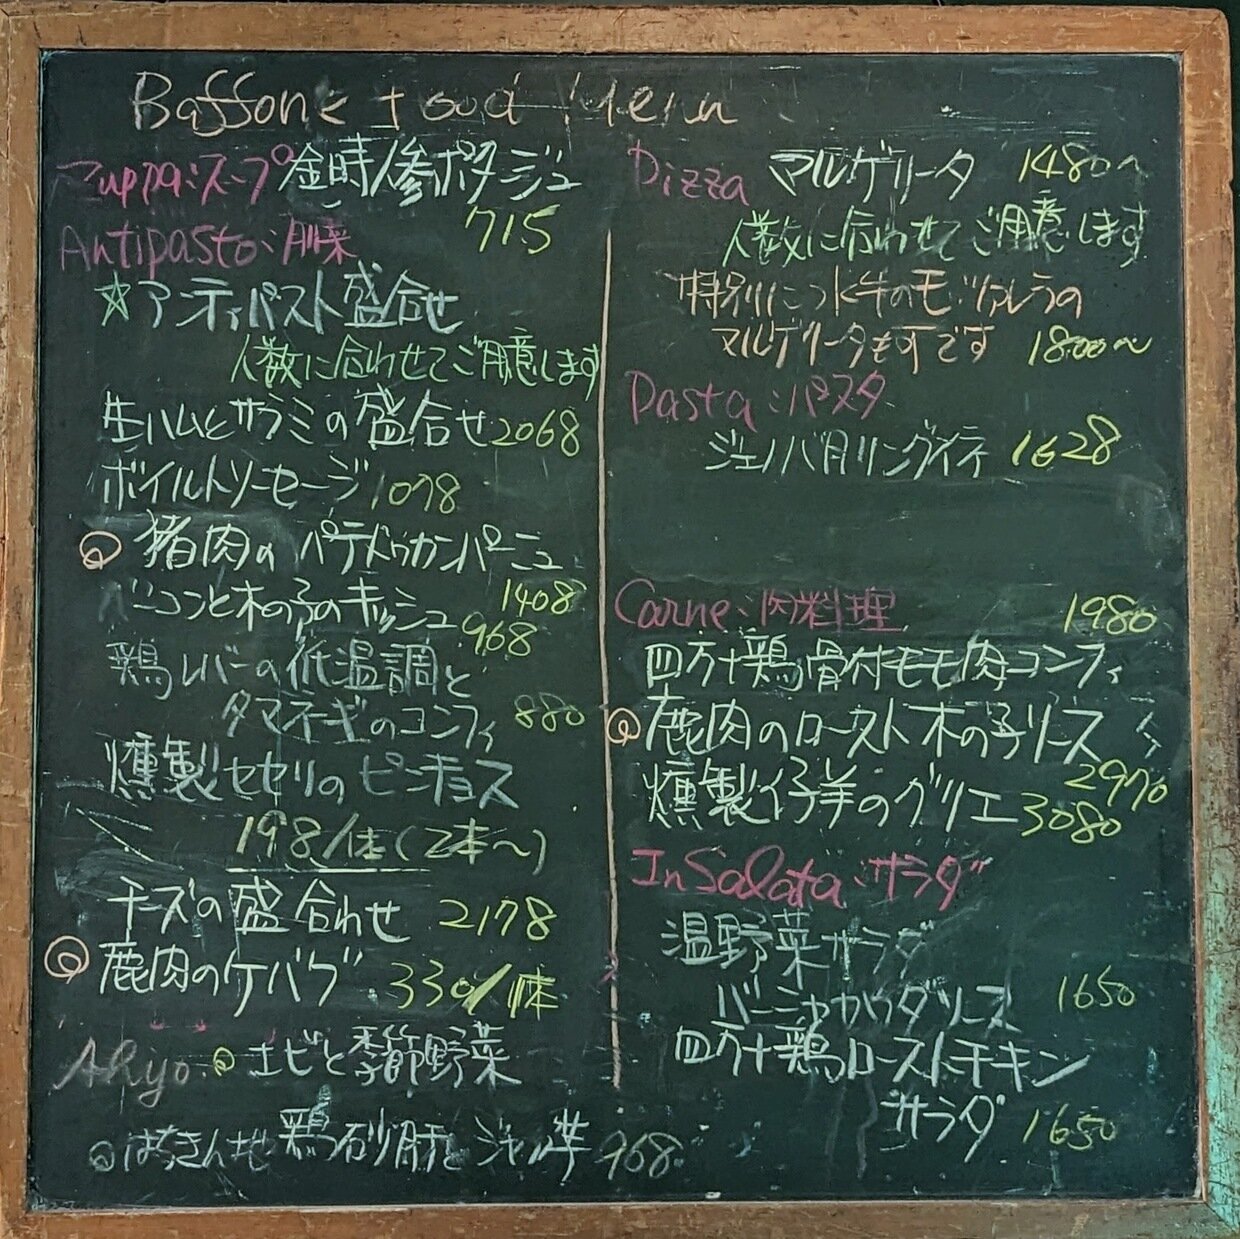 Baffone food Menu
Zuppa:スープ 金時人参ポタージュ
715
Antipasto:前菜
☆アンティパスト盛合せ
人数に合わせてご用意します
生ハムとサラミの盛合せ 2068
ボイルトソーセージ 1078
猪肉のパテドゥカンパーニュ
1408
ベーコンと木の子のキッシュ 968
鶏レバーの低温調と
タマネギのコンフィ 880
燻製セセリのピンチョス
198/本(2本〜)
チーズの盛合わせ 2178
鹿肉のケバブ 330/本
Ahyo エビと季節野菜
はちきん地鶏砂肝と 968
Pizza マルゲリータ 1480〜
人数に合わせてご用意します
特別に水牛のモッツァレラの
マルゲリータも可です 1800〜
Pasta:パスタ
ジェノバ風リングイネ 1628
Carne:肉料理 1980
四万十鶏骨付モモ肉コンフィ
鹿肉のロースト木の子ソース
2970
燻製仔羊のグリエ 3080
InSalata:サラダ
温野菜サラダ
バーニャカウダソース 1650
四万十鶏ローストチキン
サラダ 1650